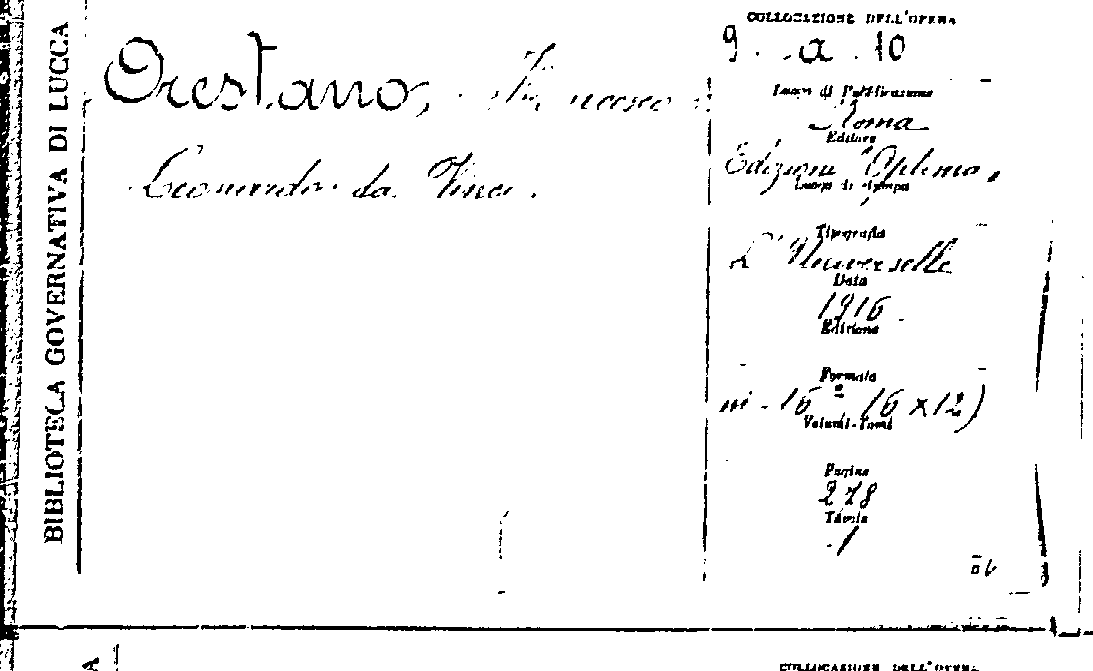 BIBLIOTECA GOVERNATIVA DI LUCCA
Orestano, Francesco
Leonardo da Vinci.
COLLOCAZIONE DELL'OPERA
9. a. 10
Luogo di Pubblicazione
Roma
Editore
Edizioni "Optima"
Luogo di stampa
Tipografia
L'Universelle
Data
1916
Edizione
Formato
in-16º (16 x 12)
Volumi-Tomi
Pagine
278
Tavole
1
COLLOCAZIONE DELL'OPERA